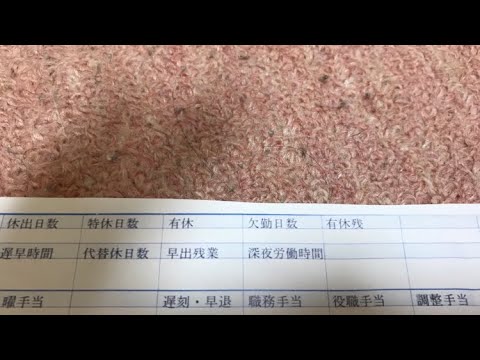 休出日数 特休日数 有休 欠勤日数 有休残
遅早時間 代替休日数 早出残業 深夜労働時間
曜手当 遅刻・早退 職務手当 役職手当 調整手当